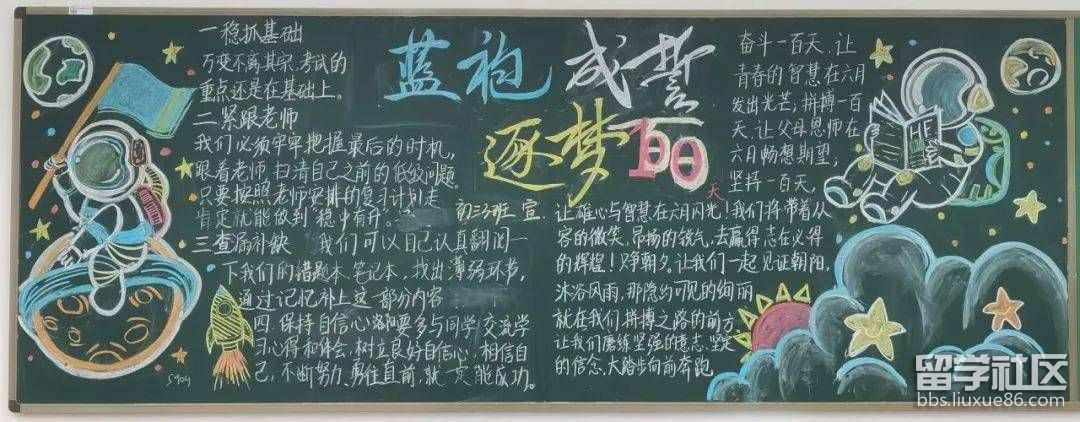 蓝袍 成誓
逐梦100天
一稳抓基础
万变不离其宗,考试的
重点还是在基础上。
二紧跟老师
我们必须牢牢把握最后的时机,
跟着老师,扫清自己之前的低级问题
只要按照老师安排的复习计划走
肯定就能做到"稳中有升"。
三查漏补缺 我们可以自己认真翻阅一
下我们的错题本、笔记本,找出薄弱环节,
通过记忆补上这一部分内容
四.保持自信心 要多与同学交流学
习心得和体会,树立良好自信心,相信自
己,不断努力、勇往直前,就一定能成功。
初三3班 宣
奋斗一百天,让
青春的智慧在六月
发出光芒;拼搏一百
天,让父母恩师在
六月畅想期望,
坚持一百天,
让雄心与智慧在六月闪光!我们将带着从
容的微笑,昂扬的锐气,去赢得志在必得
的辉煌!只争朝夕。让我们一起见证朝阳,
沐浴风雨,那隐约可见的绚丽
就在我们拼搏之路的前方,
让我们磨练坚强的意志,坚定
的信念,大踏步向前奔跑
留学社区
bbs.liuxue86.com